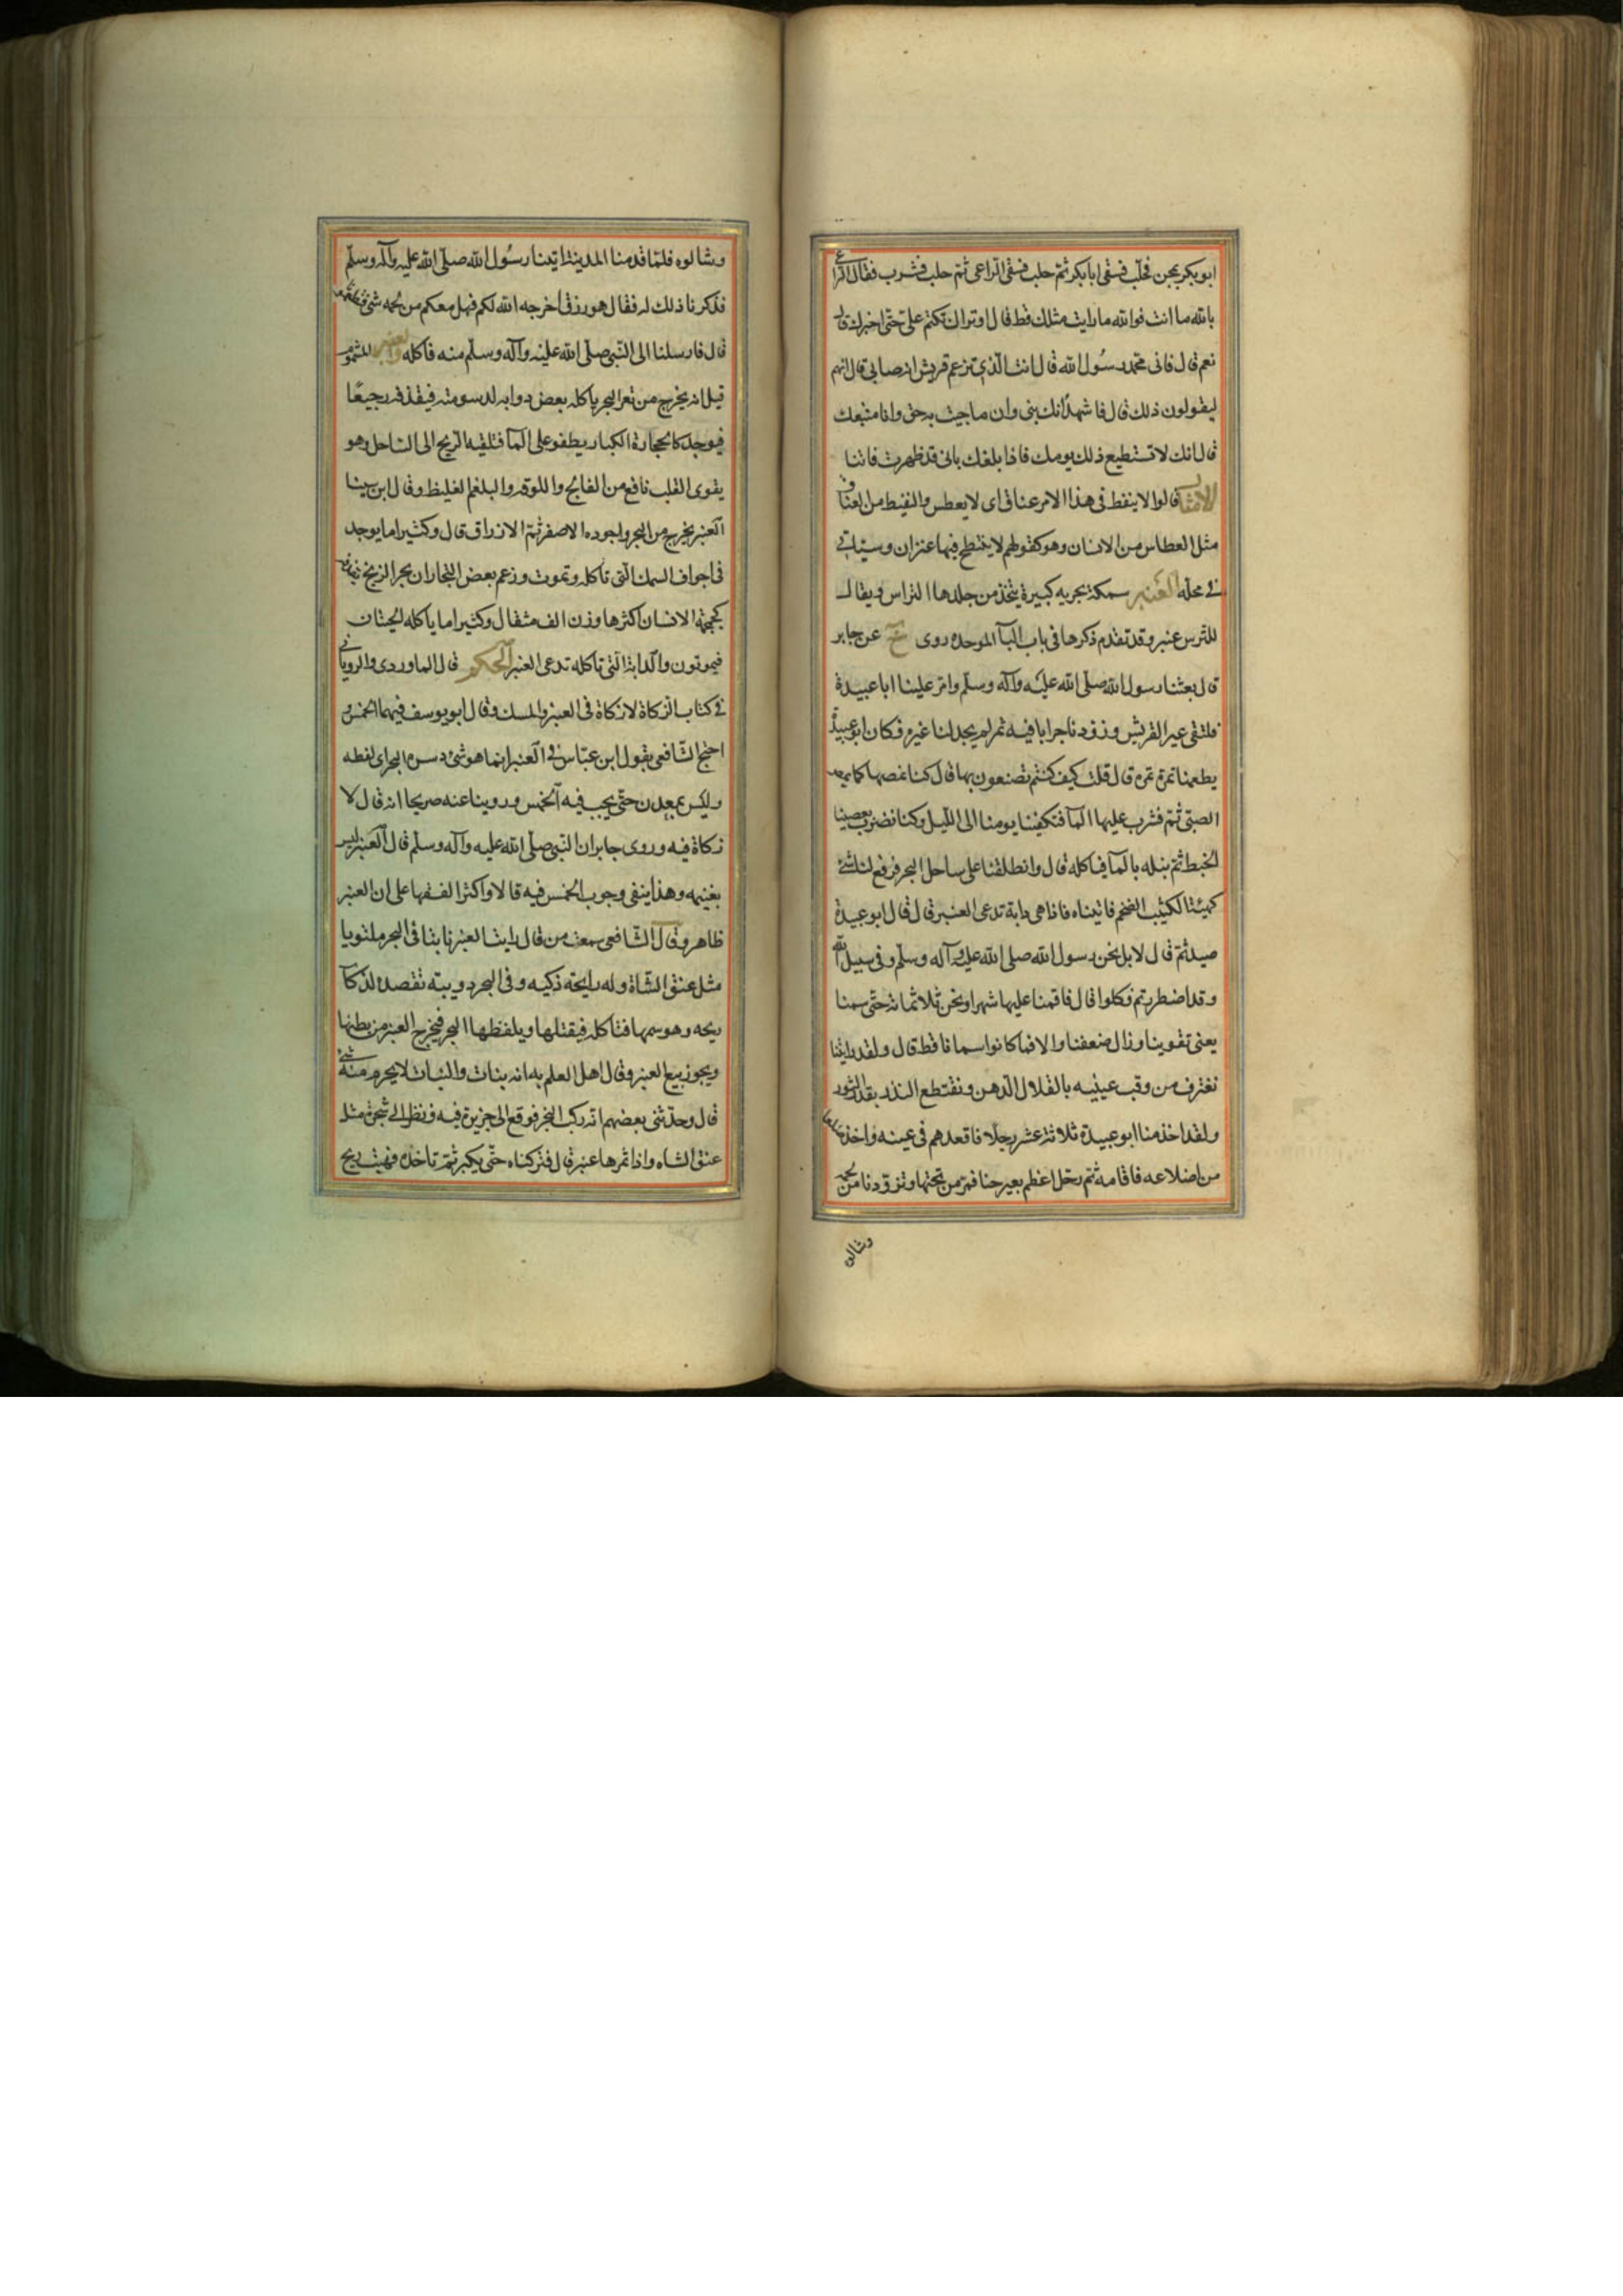 ابو بكر بمجن فحلب فسقى ابا بكر ثم حلب فسقى الراعى ثم حلب فشرب فقال الراعى
بالله ما انت فوالله ما رايت مثلك قط قال اوتراك تكتم على حتى اخبرك قال
نعم قال فانى محمد رسول الله قال انت الذى تزعم قريش انه صابى قال انهم
ليقولون ذلك قال فاشهد انك نبى وان ما جيت به حق وانا متبعك
قال انك لا تستطيع ذلك يومك فاذا بلغك بانى قد ظهرت فاتنا
الامثال قالوا لا ينفط فى هذا الامر عناق اى لا يعطس والنفيط من العناق
مثل العطاس من الانسان وهو كقولهم لا ينتطح فيها عنزان وسياتى
فى محله العنبر سمكة بحريه كبيرة يتخذ من جلدها التراس ويقال
للترس عنبر وقد تقدم ذكرها فى باب البآ الموحده روى خ عن جابر
قال بعثنا رسول الله صلى الله عليه وآله وسلم وامر علينا ابا عبيدة
فلتقى عير القريش وزودنا جرابا فيه تمر لم يجد لنا غيره فكان ابو عبيدة
يطعمنا تمرة تمرة قال قلت كيف كنتم تصنعون بها قال كنا نمصها كما يمص
الصبى ثم نشرب عليها المآ فتكفينا يومنا الى الليل وكنا نضرب بعصينا
الخبط ثم نبله بالمآ فناكله قال وانطلقنا على ساحل البحر فرفع لنا شئ
كهيئة الكثيب الضخم فاتيناه فاذا هى دابة تدعى العنبر قال قال ابو عبيدة
ميتة ثم قال لا بل نحن رسول الله صلى الله عليه وآله وسلم وفى سبيل الله
وقد اضطررتم فكلوا قال فاقمنا عليها شهرا ونحن ثلاثمائة حتى سمنا
يعنى تقوينا وزال ضعفنا والا فما كانوا سمانا قط قال ولقد رايتنا
نغترف من وقب عينيه بالقلال الدهن ونقتطع الفدر بقدر الثور
ولقد اخذ منا ابو عبيدة ثلاثة عشر رجلا فاقعدهم فى عينه واخذ ضلعا
من اضلاعه فاقامه ثم رحل اعظم بعير معنا فمر من تحتها وتزودنا من لحمه
وشالوه
وشالوه فلما قدمنا المدينة اتينا رسول الله صلى الله عليه وآله وسلم
فذكرنا ذلك له فقال هو رزق اخرجه الله لكم فهل معكم من لحمه شئ فتطعمونا
قال فارسلنا الى النبى صلى الله عليه وآله وسلم منه فاكله والعنبر المشموم
قيل انه يخرج من قعر البحر ياكله بعض دوابه لدسومته فيقذفه رجيعا
فيوجد كالحجارة الكبار يطفو على المآ فتلقيه الريح الى الساحل وهو
يقوى القلب نافع من الفالج واللوقه والبلغم الغليظ وقال ابن سينا
العنبر يخرج من البحر واجوده الاصفر ثم الازرق قال وكثيرا ما يوجد
فى اجواف السمك التى تاكله وتموت وزعم بعض التجار ان بحر الزنج
كجمجمة الانسان اكثرها وزن الف مثقال وكثيرا ما ياكله الحيتان
فيموتون والدابة التى تاكله تدعى العنبر الحكم قال الماوردى والرويانى
فى كتاب الزكاة لا زكاة فى العنبر والمسك وقال ابو يوسف فيهما الخمس و
احتج الشافعى بقول ابن عباس فى العنبر انما هو شئ دسره البحر اى لفظه
وليس بمعدن حتى يجب فيه الخمس وروينا عنه صريحا انه قال لا
زكاة فيه وروى جابر ان النبى صلى الله عليه وآله وسلم قال العنبر ليس
بغنيمه وهذا ينفى وجوب الخمس فيه قالا واكثر الفقها على ان العنبر
طاهر وقال الشافعى سمعت من قال رايت العنبر نابتا فى البحر ملتويا
مثل عنق الشاة وله رايحة ذكيه وفى البحر دويبة تقصده لذكآ
ريحه وهو سمها فتاكله فيقتلها ويلفظها البحر فيخرج العنبر من بطنها
ويجوز بيع العنبر وقال اهل العلم به انه نبات والنبات لا يحرم منه شئ
قال وحدثنى بعضهم انه ركب البحر فوقع الى جزيرة فيه فنظر الى شجرة مثل
عنق الشاه واذا ثمرها عنبر قال فتركناه حتى يكبر ثم تاخذه فهبت ريح